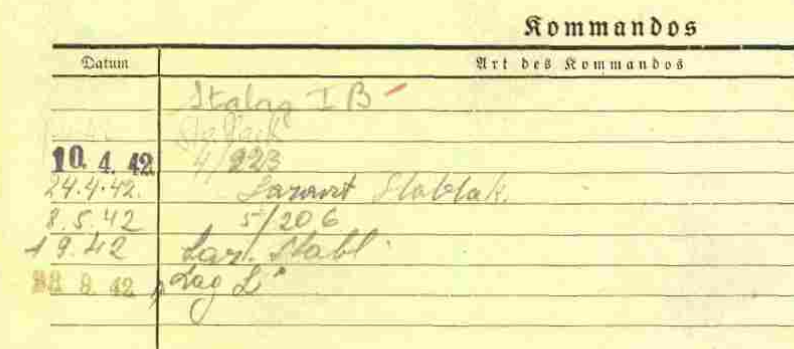 Kommandos
Datum Art des Kommandos
Stalag I B
10. 4. 42 4/223
24.4.42. Lazarett Stablak.
8.5.42 5/206
1 9.42 Laz. Stabl.
9. 42 Lag L